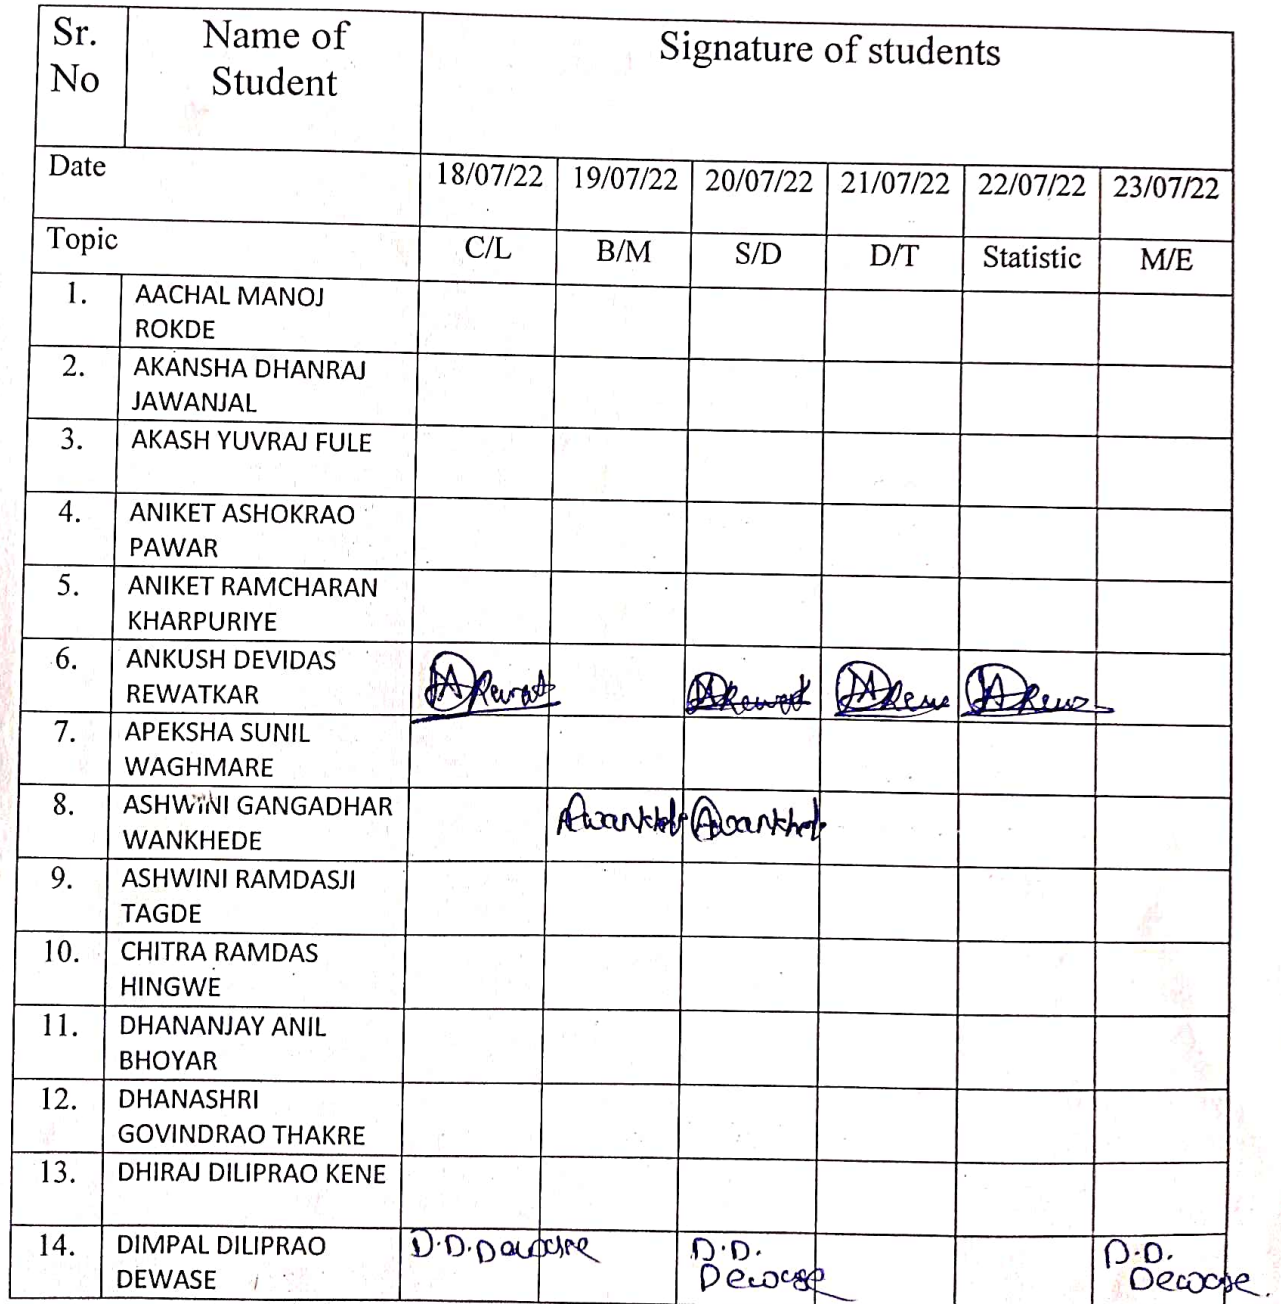 Sr. No
Name of Student
Signature of students
Date 18/07/22 19/07/22 20/07/22 21/07/22 22/07/22 23/07/22
Topic C/L B/M S/D D/T Statistic M/E
1. AACHAL MANOJ
ROKDE
2. AKANSHA DHANRAJ
JAWANJAL
3. AKASH YUVRAJ FULE
4. ANIKET ASHOKRAO
PAWAR
5. ANIKET RAMCHARAN
KHARPURIYE
6. ANKUSH DEVIDAS
REWATKAR
7. APEKSHA SUNIL
WAGHMARE
8. ASHWINI GANGADHAR
WANKHEDE
9. ASHWINI RAMDASJI
TAGDE
10. CHITRA RAMDAS
HINGWE
11. DHANANJAY ANIL
BHOYAR
12. DHANASHRI
GOVINDRAO THAKRE
13. DHIRAJ DILIPRAO KENE
14. DIMPAL DILIPRAO D.D. Dewase D.D. D.D.
DEWASE Dewase Dewase.